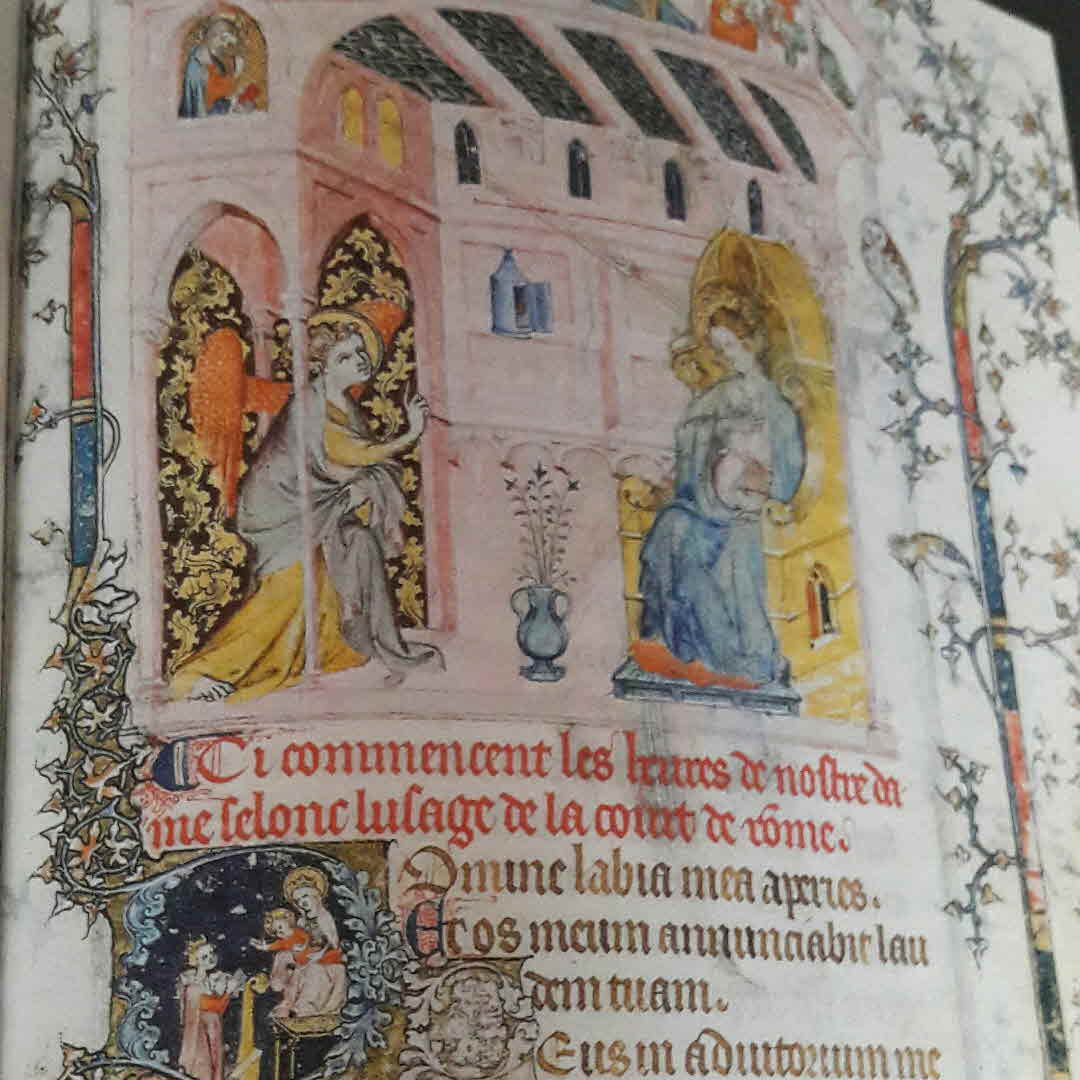 Ci commencent les heures de nostre da
me selonc lusage de la court de rõme.
Domine labia mea aperies.
Et os meum annunciabit lau
dem tuam.
Deus in adiutorium me